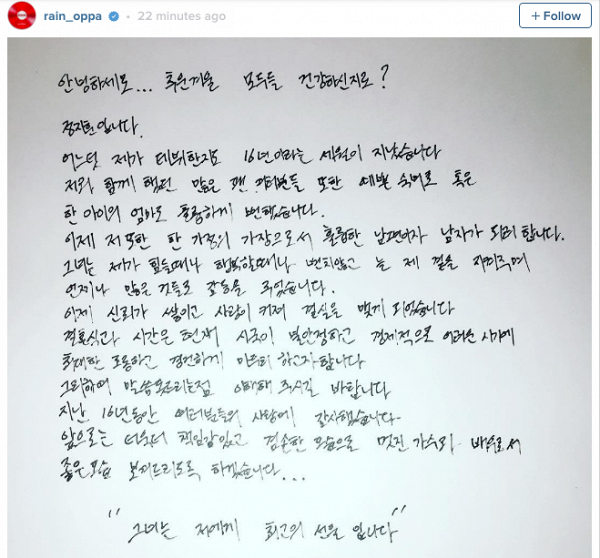 rain_oppa • 22 minutes ago + Follow
안녕하세요... 추운겨울 모두들 건강하신지요?
정지훈입니다.
어느덧 제가 데뷔한지도 16년이라는 세월이 지났습니다
저와 함께 했던 많은 팬 여러분들 또한 예쁜 숙녀로 혹은
한 아이의 엄마로 훌륭하게 변했습니다.
이제 저 또한 한 가정의 가장으로서 훌륭한 남편이자 남자가 되려 합니다.
그녀는 제가 힘들때나 행복할때나 변치않고 늘 제 곁을 지켜주며
언제나 많은것들로 감동을 주었습니다.
이제 신뢰가 쌓이고 사랑이 커져 결실을 맺게 되었습니다
결혼식과 시간은 현재 시국이 불안정하고 경제적으로 어려운 시기에
최대한 조용하고 경건하게 마무리 하고자합니다
그리하여 말씀못드리는점 이해해 주시길 바랍니다
지난 16년동안 여러분들의 사랑에 감사했습니다.
앞으로는 더욱더 책임감있고 겸손한 모습으로 멋진 가수와 배우로서
좋은모습 보여드리도록 하겠습니다...
"그녀는 저에게 최고의 선물 입니다"